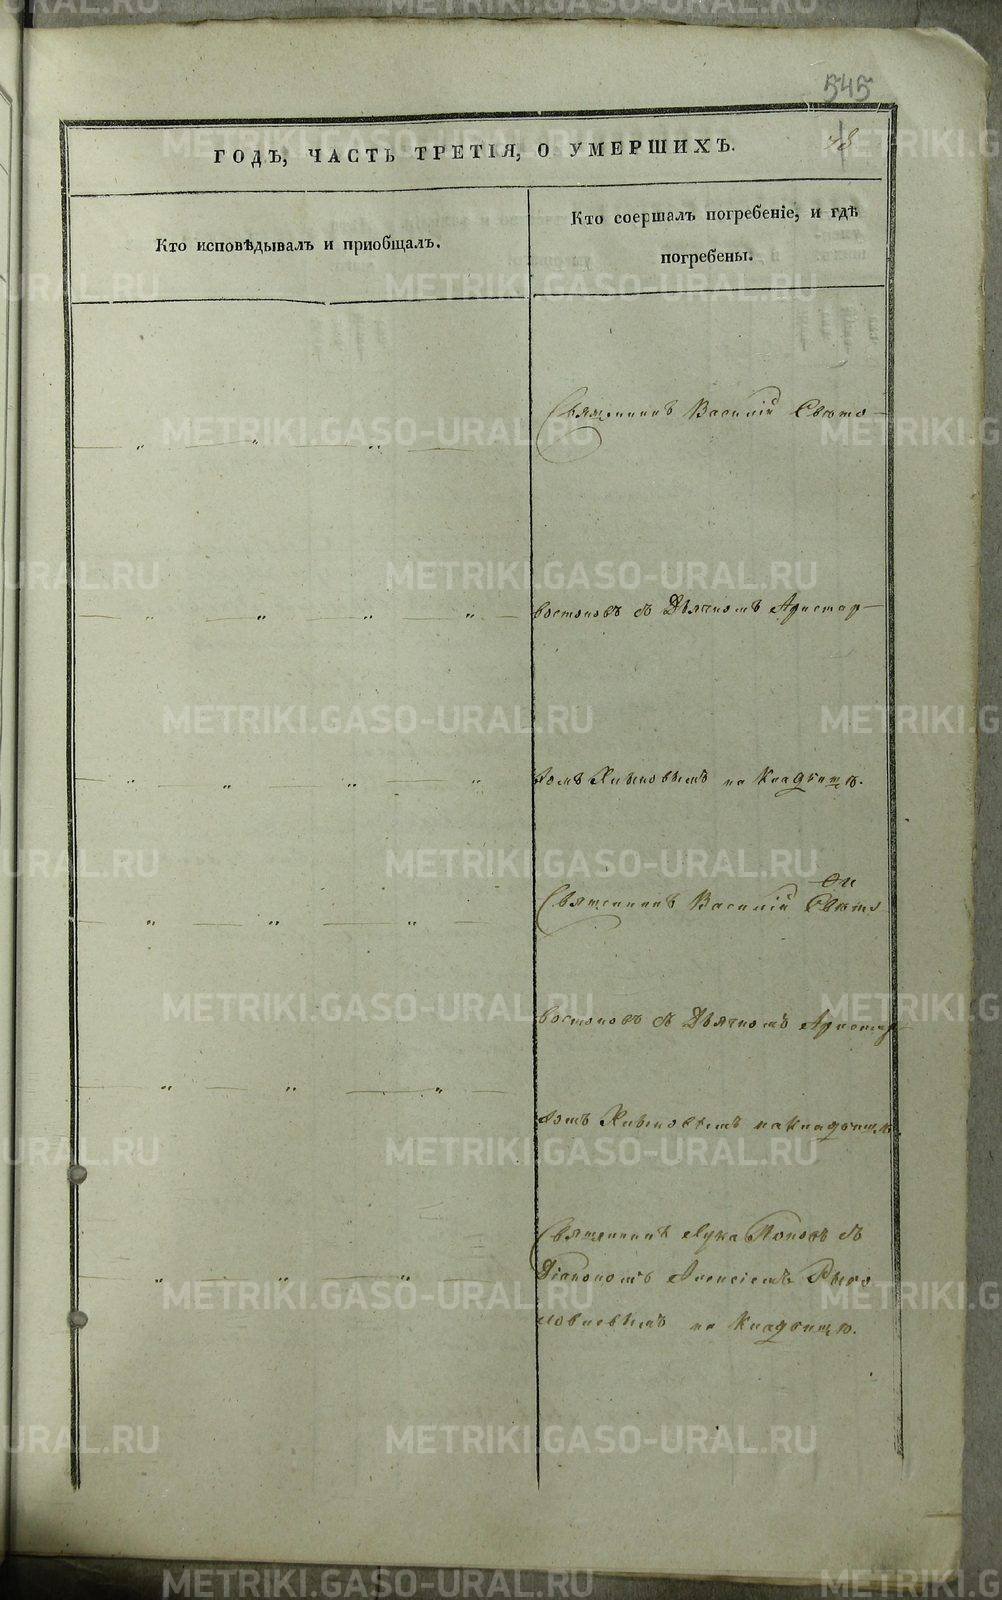 545
48
ГОДЪ, ЧАСТЬ ТРЕТІЯ, О УМЕРШИХЪ.
Кто исповѣдывалъ и приобщалъ.
Кто соершалъ погребеніе, и гдѣ
погребены.
Священникъ Василій Свѣто-
востоковъ съ Дьячкомъ Аристар-
хомъ на Кладбищѣ.
Священникъ Василій Свѣто
востоковъ съ Дьячкомъ Аристар-
хомъ на Кладбищѣ.
Священникъ Лука Поповъ съ
Діакономъ Алексіемъ
на Кладбищѣ.
METRIKI.GASO-URAL.RU